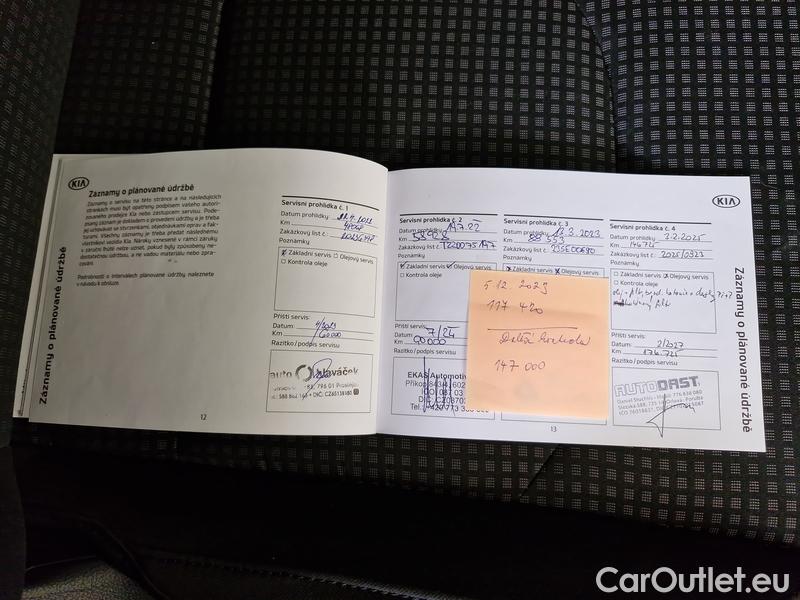 KIA
Záznamy o plánované údržbě
Záznamy o servisu na této stránce a na následujících
stránkách musí být opatřeny podpisem vašeho autori-
zovaného prodejce Kia nebo zástupcem servisu. Pode-
psaný záznam je dokladem o provedení údržby a je třeba
jej uchovávat se stvrzenkami, objednávkami oprav a fak-
turami. Všechny záznamy je třeba předat následnému
vlastníkovi vozidla Kia. Nároky vznesené v rámci záruky
v záruční lhůtě nelze uznat, pokud byly způsobeny ne-
dostatečnou údržbou, a ne vadou materiálu nebo zpra-
cování.
Podrobnosti o intervalech plánované údržby naleznete
v návodu k obsluze.
Záznamy o plánované údržbě
12
Servisní prohlídka č. 1
Datum prohlídky
Km
Zakázkový list č.
Poznámky
Základní servis Olejový servis
Kontrola oleje
Příští servis:
Datum 4/2023
Km 60 000
Razítko / podpis servisu
auto Hlaváček
796 01 Prostějov
DIČ: CZ65138180
Servisní prohlídka č. 2
Datum prohlídky 14.7.22
Km
Zakázkový list č.
Poznámky
Základní servis Olejový servis
Kontrola oleje
Příští servis:
Datum 7/24
Km 90 000
Razítko / podpis servisu
EKAS Automotiv
Servisní prohlídka č. 3
Datum prohlídky 13.3.2023
Km 88 553
Zakázkový list č.
Poznámky
Základní servis Olejový servis
5 12. 2023
117 420
Další prohlídka
147 000
Servisní prohlídka č. 4
Datum prohlídky 3.2.2025
Km 146725
Zakázkový list č. 2025/0323
Poznámky
Základní servis Olejový servis
Kontrola oleje
Příští servis:
Datum 2/2027
Km 176.725
Razítko / podpis servisu
AUTODAST
Daniel Stuchlý
13
KIA
Záznamy o plánované údržbě
CarOutlet.eu